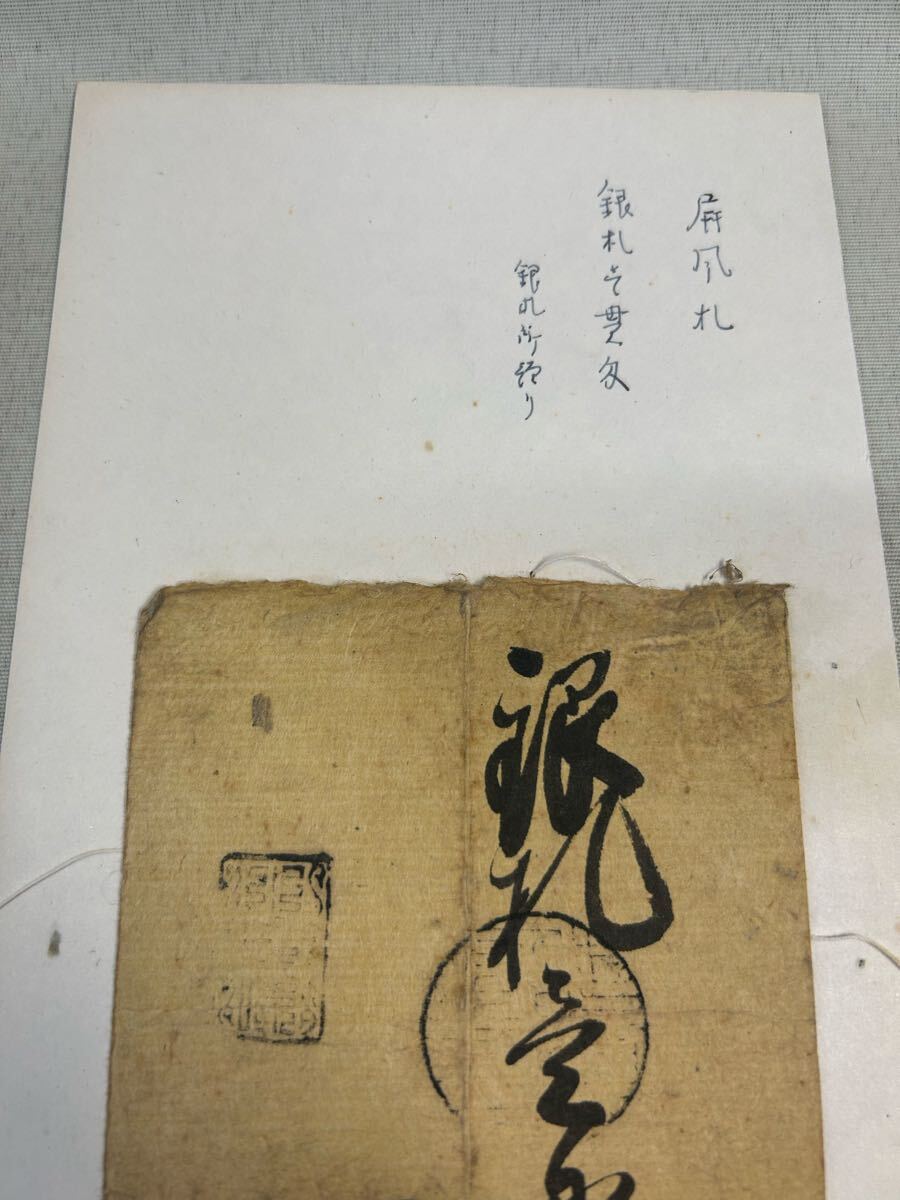 屏風札
銀札壱貫匁
銀札所預り
銀札壱